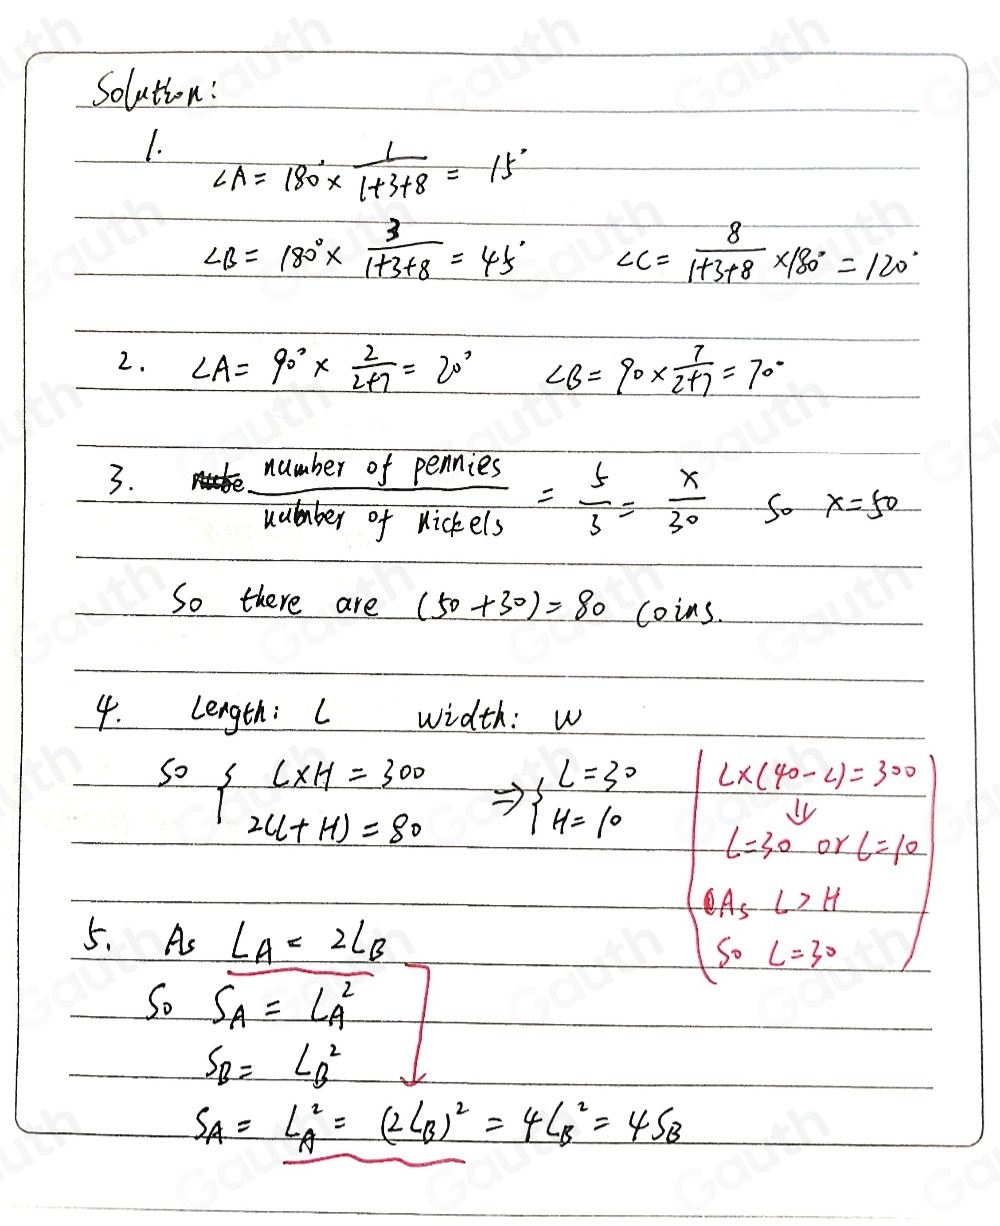 Solution:
1.
∠A = 180° × 1/(1+3+8) = 15°
∠B = 180° × 3/(1+3+8) = 45° ∠C = 8/(1+3+8) ×180° = 120°
2. ∠A = 90° × 2/(2+7) = 20° ∠B = 90 × 7/(2+7) = 70°
3. number of pennies / number of nickels = 5/3 = x/30 So x=50
So there are (50+30) = 80 coins.
4. Length: L width: W
so { L×H = 300
2(L+H) = 80
⇒ { L=30
H=10
( L×(40-L)=300
⇓
L=30 or L=10
As L>H
So L=30 )
5. As L_A = 2L_B
So S_A = L_A²
S_B = L_B²
S_A = L_A² = (2L_B)² = 4L_B² = 4S_B
Gauth